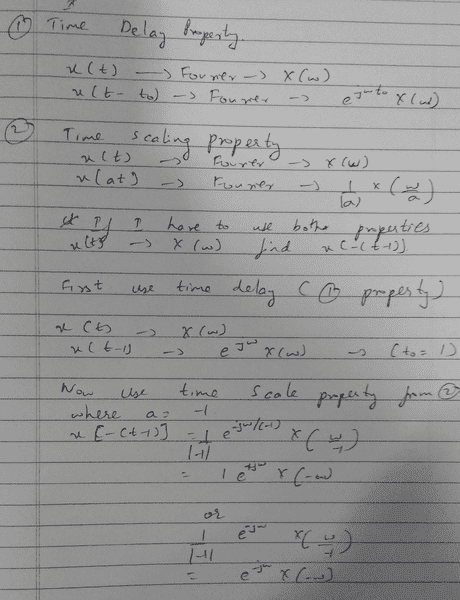 ① Time Delay Property.
x(t) → Fourier → X(ω)
x(t - t₀) → Fourier → e^{-jωt₀} X(ω)
② Time scaling property
x(t) → Fourier → X(ω)
x(at) → Fourier → 1/|a| X(ω/a)
If I have to use both properties
x(t) → X(ω) find x(-(t-1))
First use time delay (① property)
x(t) → X(ω)
x(t-1) → e^{-jω} X(ω) → (t₀ = 1)
Now use time scale property from ②
where a = -1
x[-(t-1)] = 1/|-1| e^{-jω/(-1)} X(ω/-1)
= 1 e^{+jω} X(-ω)
or
1/|-1| e^{-jω} X(ω/-1)
= e^{-jω} X(-ω)